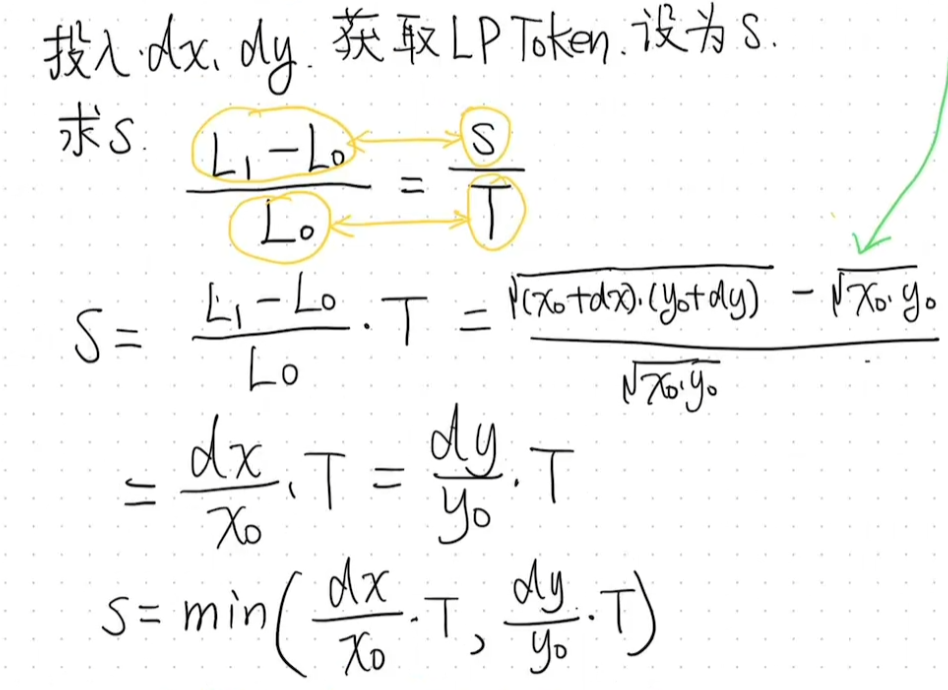 投入dx、dy. 获取LP Token. 设为S.
求S. (L₁ - L₀)/L₀ = S/T
S = (L₁ - L₀)/L₀ · T = (√((x₀+dx)·(y₀+dy)) - √(x₀·y₀))/√(x₀·y₀)
= dx/x₀ · T = dy/y₀ · T
S = min(dx/x₀ · T, dy/y₀ · T)